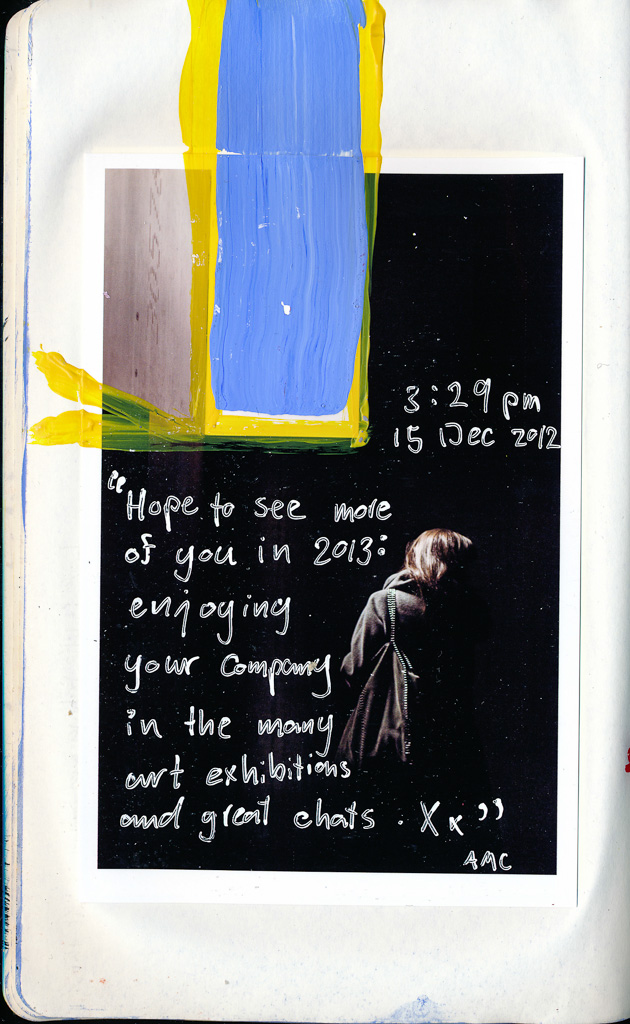 3:29 pm
15 Dec 2012
"Hope to see more
of you in 2013:
enjoying
your company
in the many
art exhibitions
and great chats. Xx"
AMC